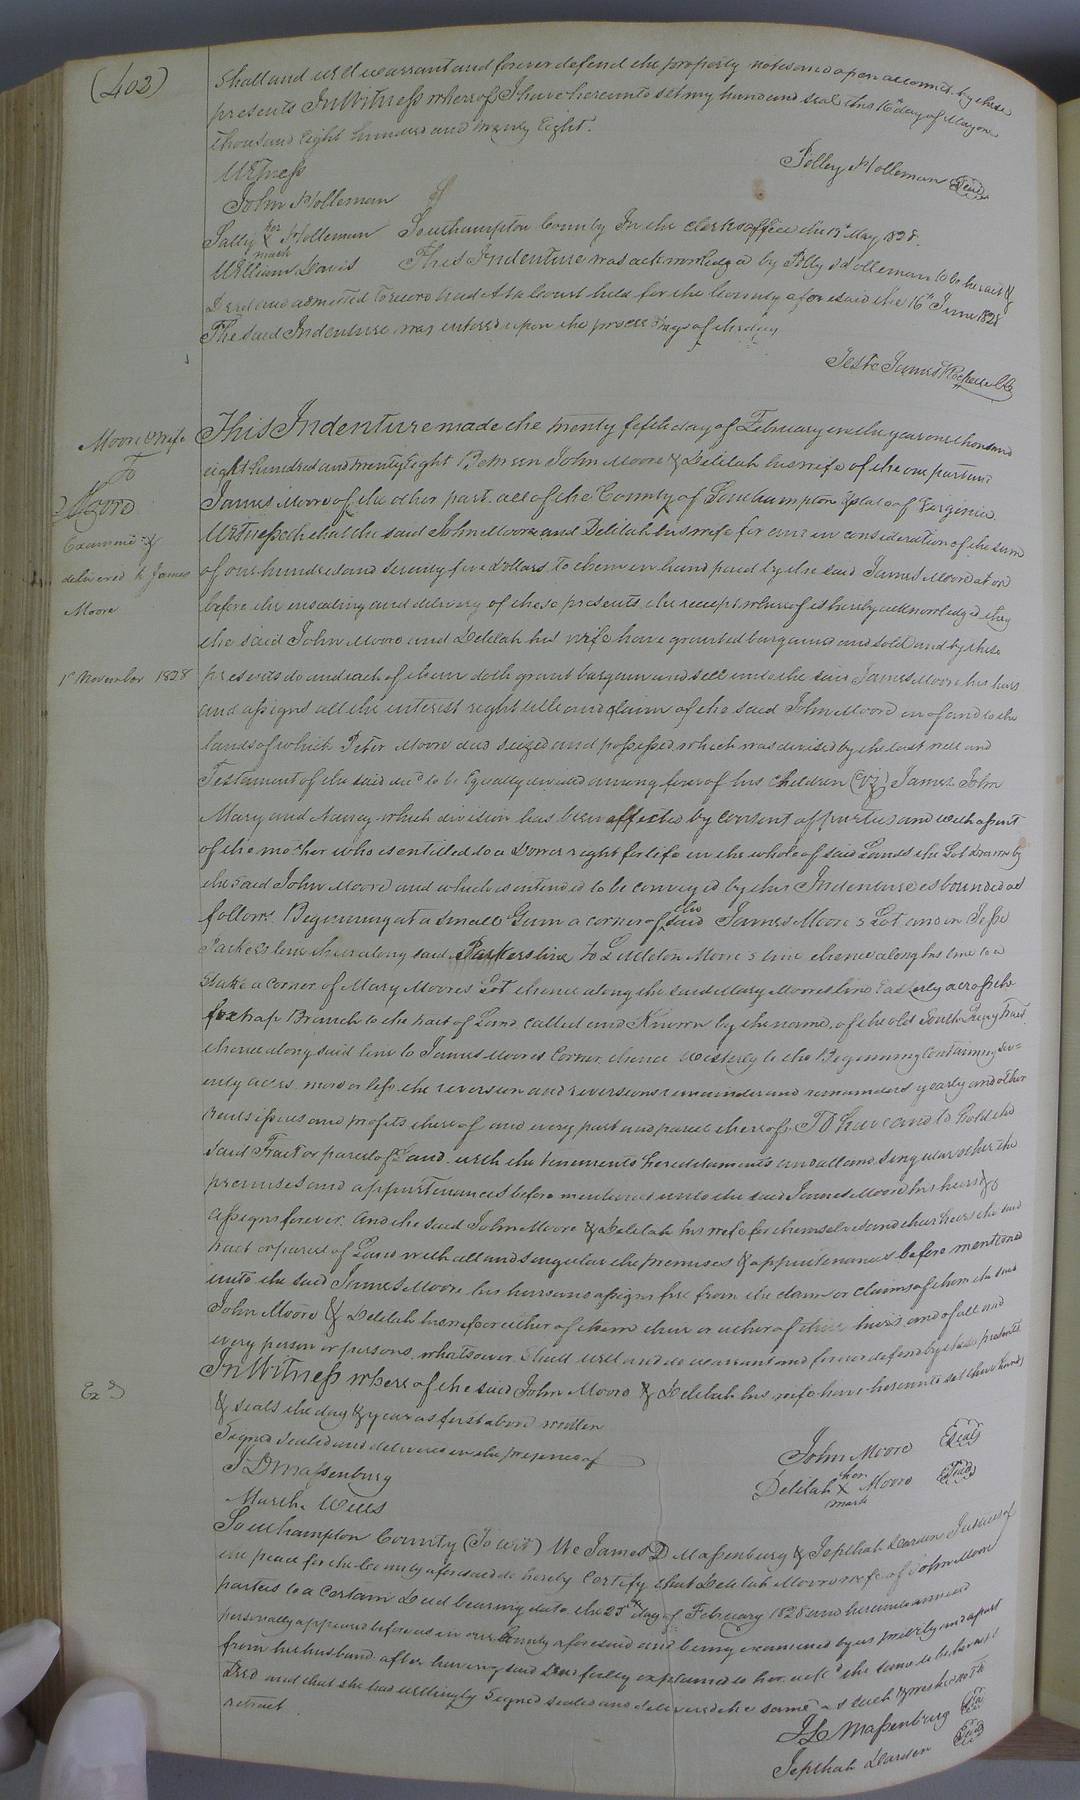 (402)
Shall and will warrant and forever defend the property notes and open accounts by these
presents In Witness whereof I have hereunto set my hand and seal this 16th day of May one
thousand Eight hundred and twenty Eight.
Polley Holleman Seal
Witness
John Holleman
Sally her X mark Holleman
William Davis
Southampton County In the clerks office the 19th May 1828.
This Indenture was acknowledged by Polly Holleman to be her act &
Deed and admitted to record And At a Court held for the County aforesaid the 16th June 1828
The said Indenture was entered upon the proceedings of the day
Teste James Rochelle Clk
Moore & wife
To
Moore
Examined &
delivered to James
Moore
1st November 1828
This Indenture made the twenty fifth day of February in the year one thousand
eight hundred and twenty Eight Between John Moore & Delilah his wife of the one part and
James Moore of the other part all of the County of Southampton & state of Virginia.
Witnesseth that the said John Moore and Delilah his wife for and in consideration of the sum
of one hundred and seventy five Dollars to them in hand paid by the said James Moore at or
before the ensealing and delivery of these presents the receipt whereof is hereby acknowledged they
the said John Moore and Delilah his wife have granted bargained and sold and by these
presents do and each of them doth grant bargain and sell unto the said James Moore his heirs
and assigns all the interest right title and claim of the said John Moore in of and to the
lands of which Peter Moore died seized and possessed which was devised by the last will and
Testament of the said decd to be Equally divided among four of his children (viz) James John
Mary and Nancy which division has been affected by consent of parties and with assent
of the mother who is entitled to a Dower right for life in the whole of said Lands the Lot drawn by
the said John Moore and which is intended to be conveyed by this Indenture is bounded as
follows. Beginning at a small Gum a corner of the said James Moore's Lot and in Jesse
Parkers line thence along said Parkers line to Littleton Moore's line thence along his line to a
Stake a corner of Mary Moores Lot thence along the said Mary Moores line Easterly across the
foxtrap Branch to the tract of Land called and Known by the name of the old South Quay tract
thence along said line to James Moores Corner thence Westerly to the Beginning Containing sev=
enty acres more or less the reversion and reversions remainder and remainders yearly and other
rents issues and profits thereof and every part and parcel thereof. To have and to hold the
said Tract or parcel of Land with the tenements hereditaments and all and singular other the
premises and appurtenances before mentioned unto the said James Moore his heirs &
assigns forever. And the said John Moore & Delilah his wife for themselves and their heirs the said
tract or parcel of Land with all and singular the premises & appurtenances before mentioned
unto the said James Moore his heirs and assigns free from the claim or claims of them the said
John Moore & Delilah his wife or either of them their or either of their heirs and of all and
every person or persons whatsoever shall will and do warrant and forever defend by these presents
Exd
In Witness whereof the said John Moore & Delilah his wife have hereunto set their hands
& seals the day & year as first above written
Signed sealed and delivered in the presence of
J D Massenburg
Marth. Wills
John Moore Seal
Delilah her X mark Moore Seal
Southampton County (To wit) We James D Massenburg & Jepthah Darden Justices of
the peace for the County aforesaid do hereby Certify that Delilah Moore wife of John Moore
parties to a Certain Deed bearing date the 25th day of February 1828 and hereunto annexed
personally appeared before us in our County aforesaid and being examined by us privily and apart
from her husband after having said Deed fully explained to her ackd the same to be her act &
Deed and that she had willingly Signed sealed and delivered the same as such & wished not to
retract
J D Massenburg Seal
Jepthah Darden Seal